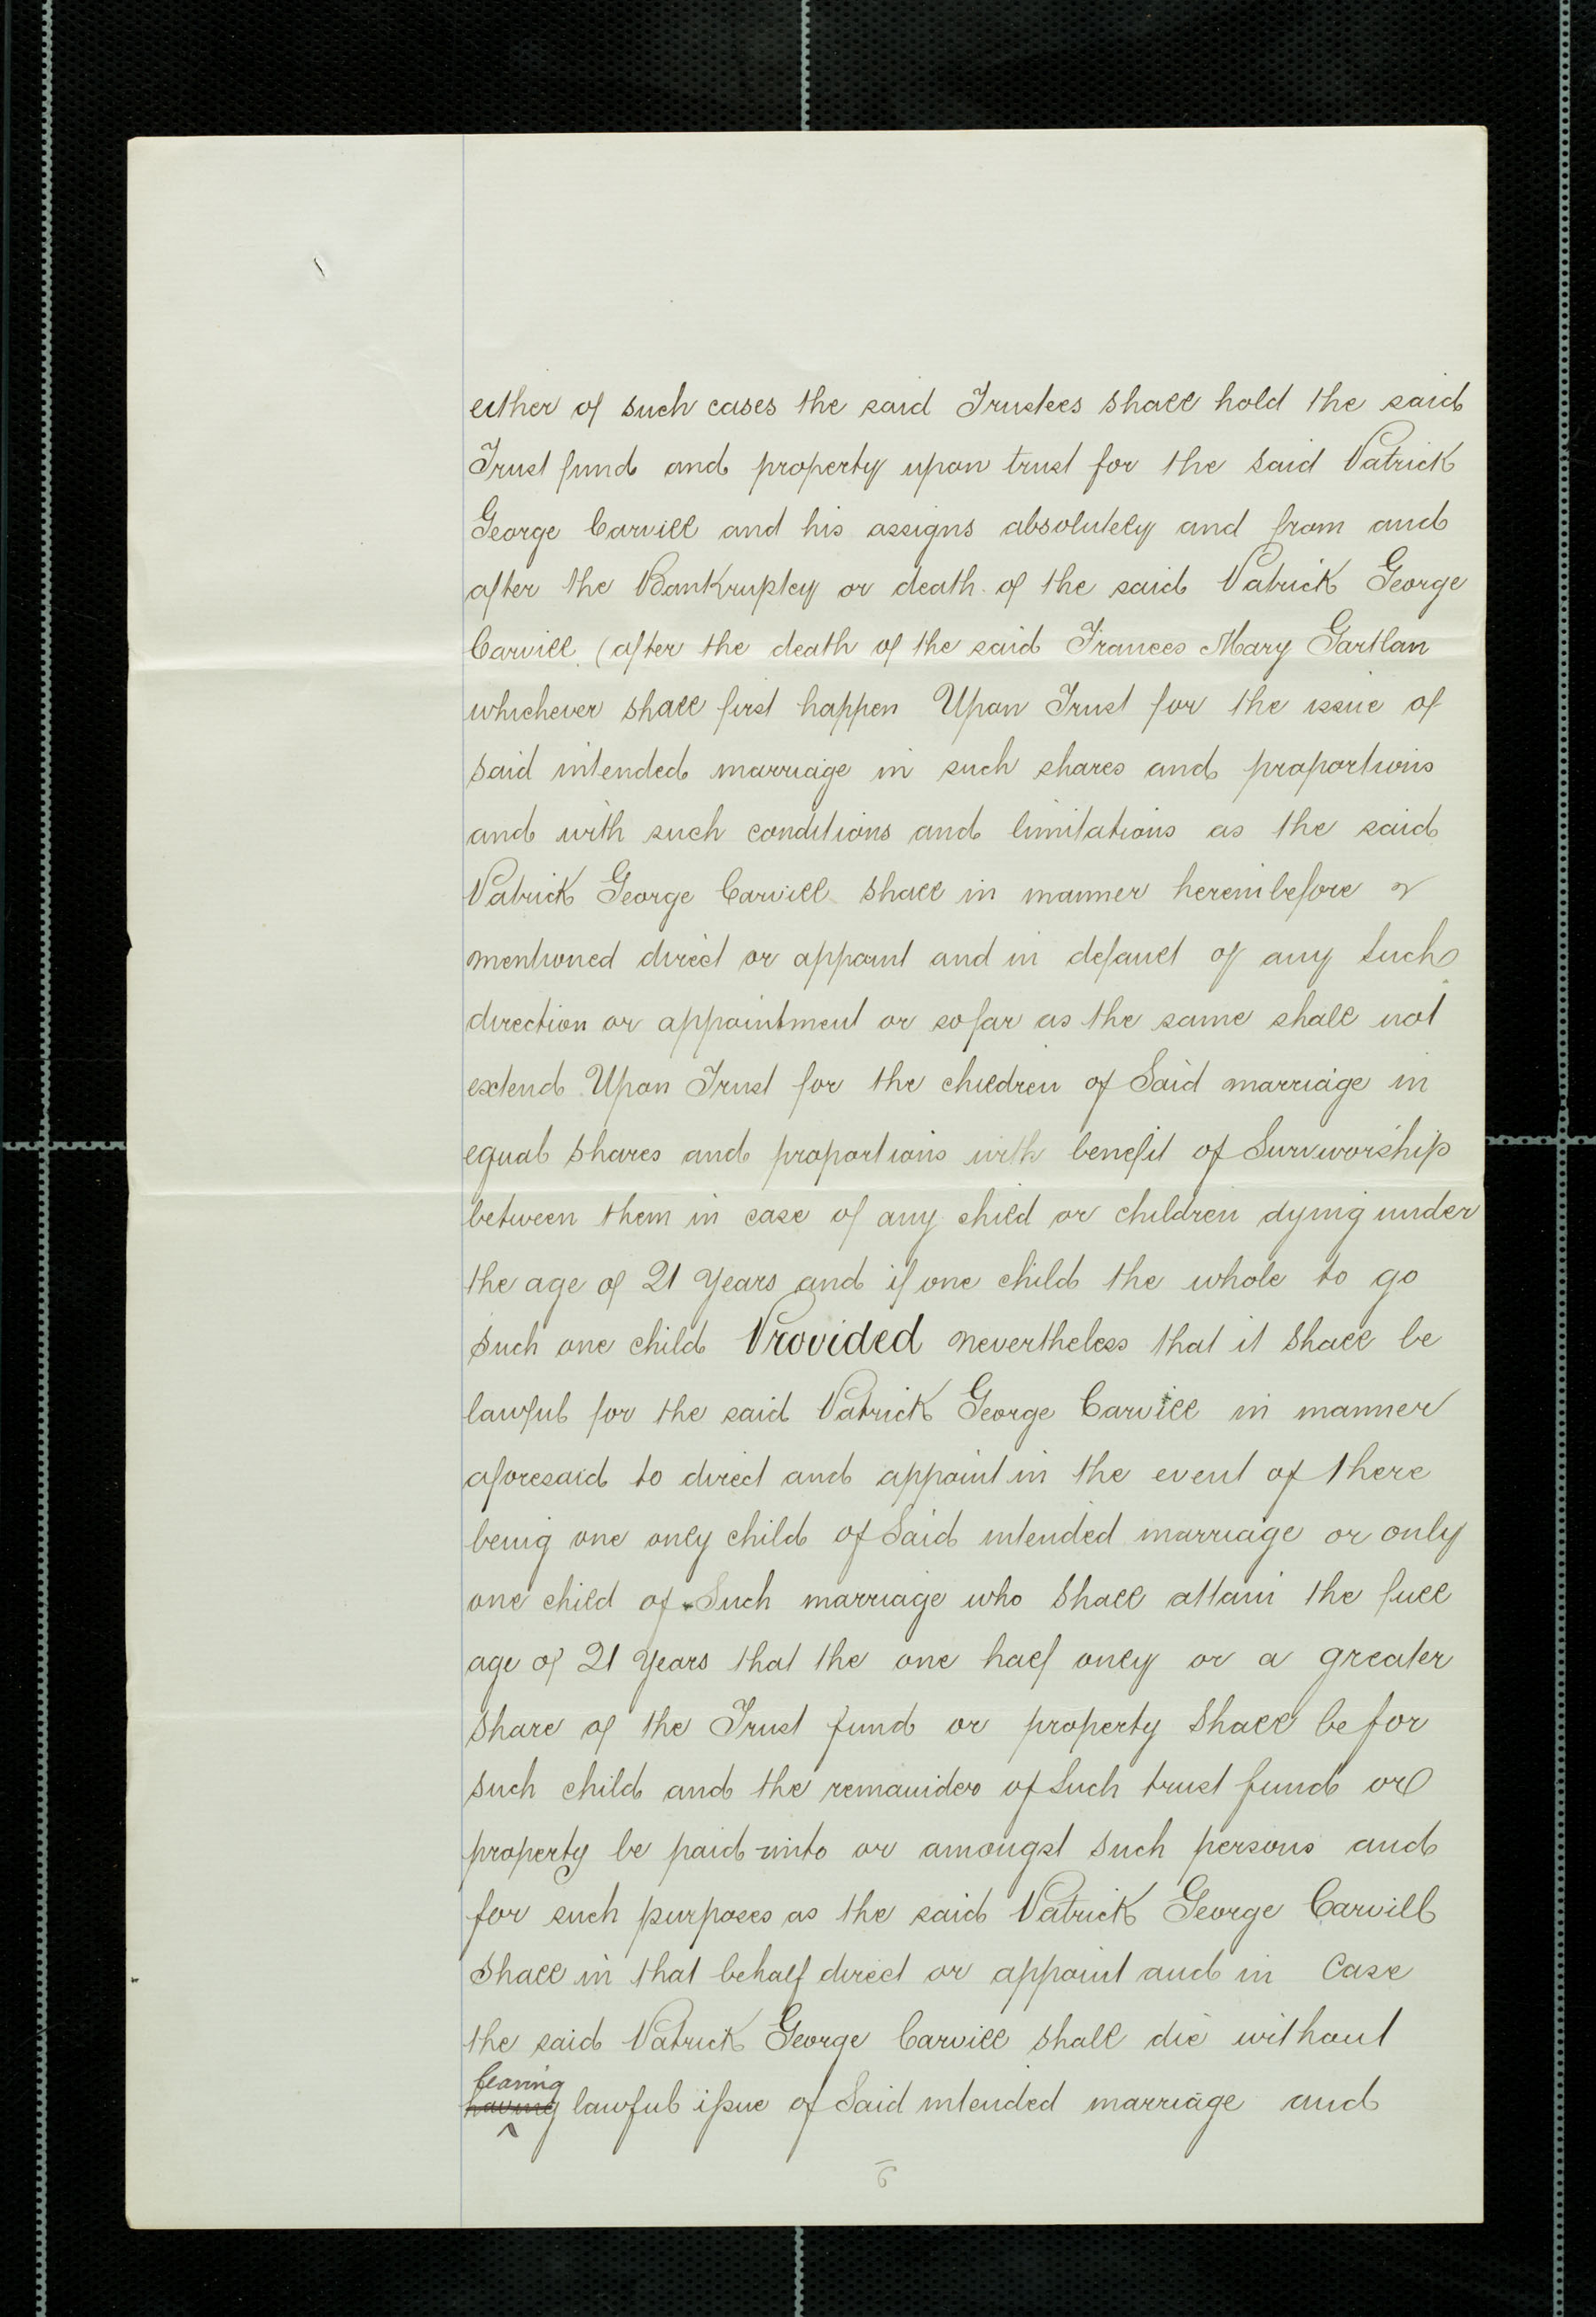 either of such cases the said Trustees shall hold the said
Trust fund and property upon trust for the said Patrick
George Carvill and his assigns absolutely and from and
after the Bankruptcy or death of the said Patrick George
Carvill (after the death of the said Frances Mary Gartlan
whichever shall first happen Upon Trust for the issue of
said intended marriage in such shares and proportions
and with such conditions and limitations as the said
Patrick George Carvill shall in manner hereinbefore
mentioned direct or appoint and in default of any such
direction or appointment or so far as the same shall not
extend Upon Trust for the children of Said marriage in
equal shares and proportions with benefit of Survivorship
between them in case of any child or children dying under
the age of 21 Years and if one child the whole to go
such one child Provided nevertheless that it shall be
lawful for the said Patrick George Carvill in manner
aforesaid to direct and appoint in the event of there
being one only child of Said intended marriage or only
one child of Such marriage who shall attain the full
age of 21 Years that the one half only or a greater
share of the Trust fund or property shall be for
such child and the remainder of Such trust fund or
property be paid unto or amongst such persons and
for such purposes as the said Patrick George Carvill
shall in that behalf direct or appoint and in Case
the said Patrick George Carvill shall die without
leaving
having lawful issue of Said intended marriage and
6